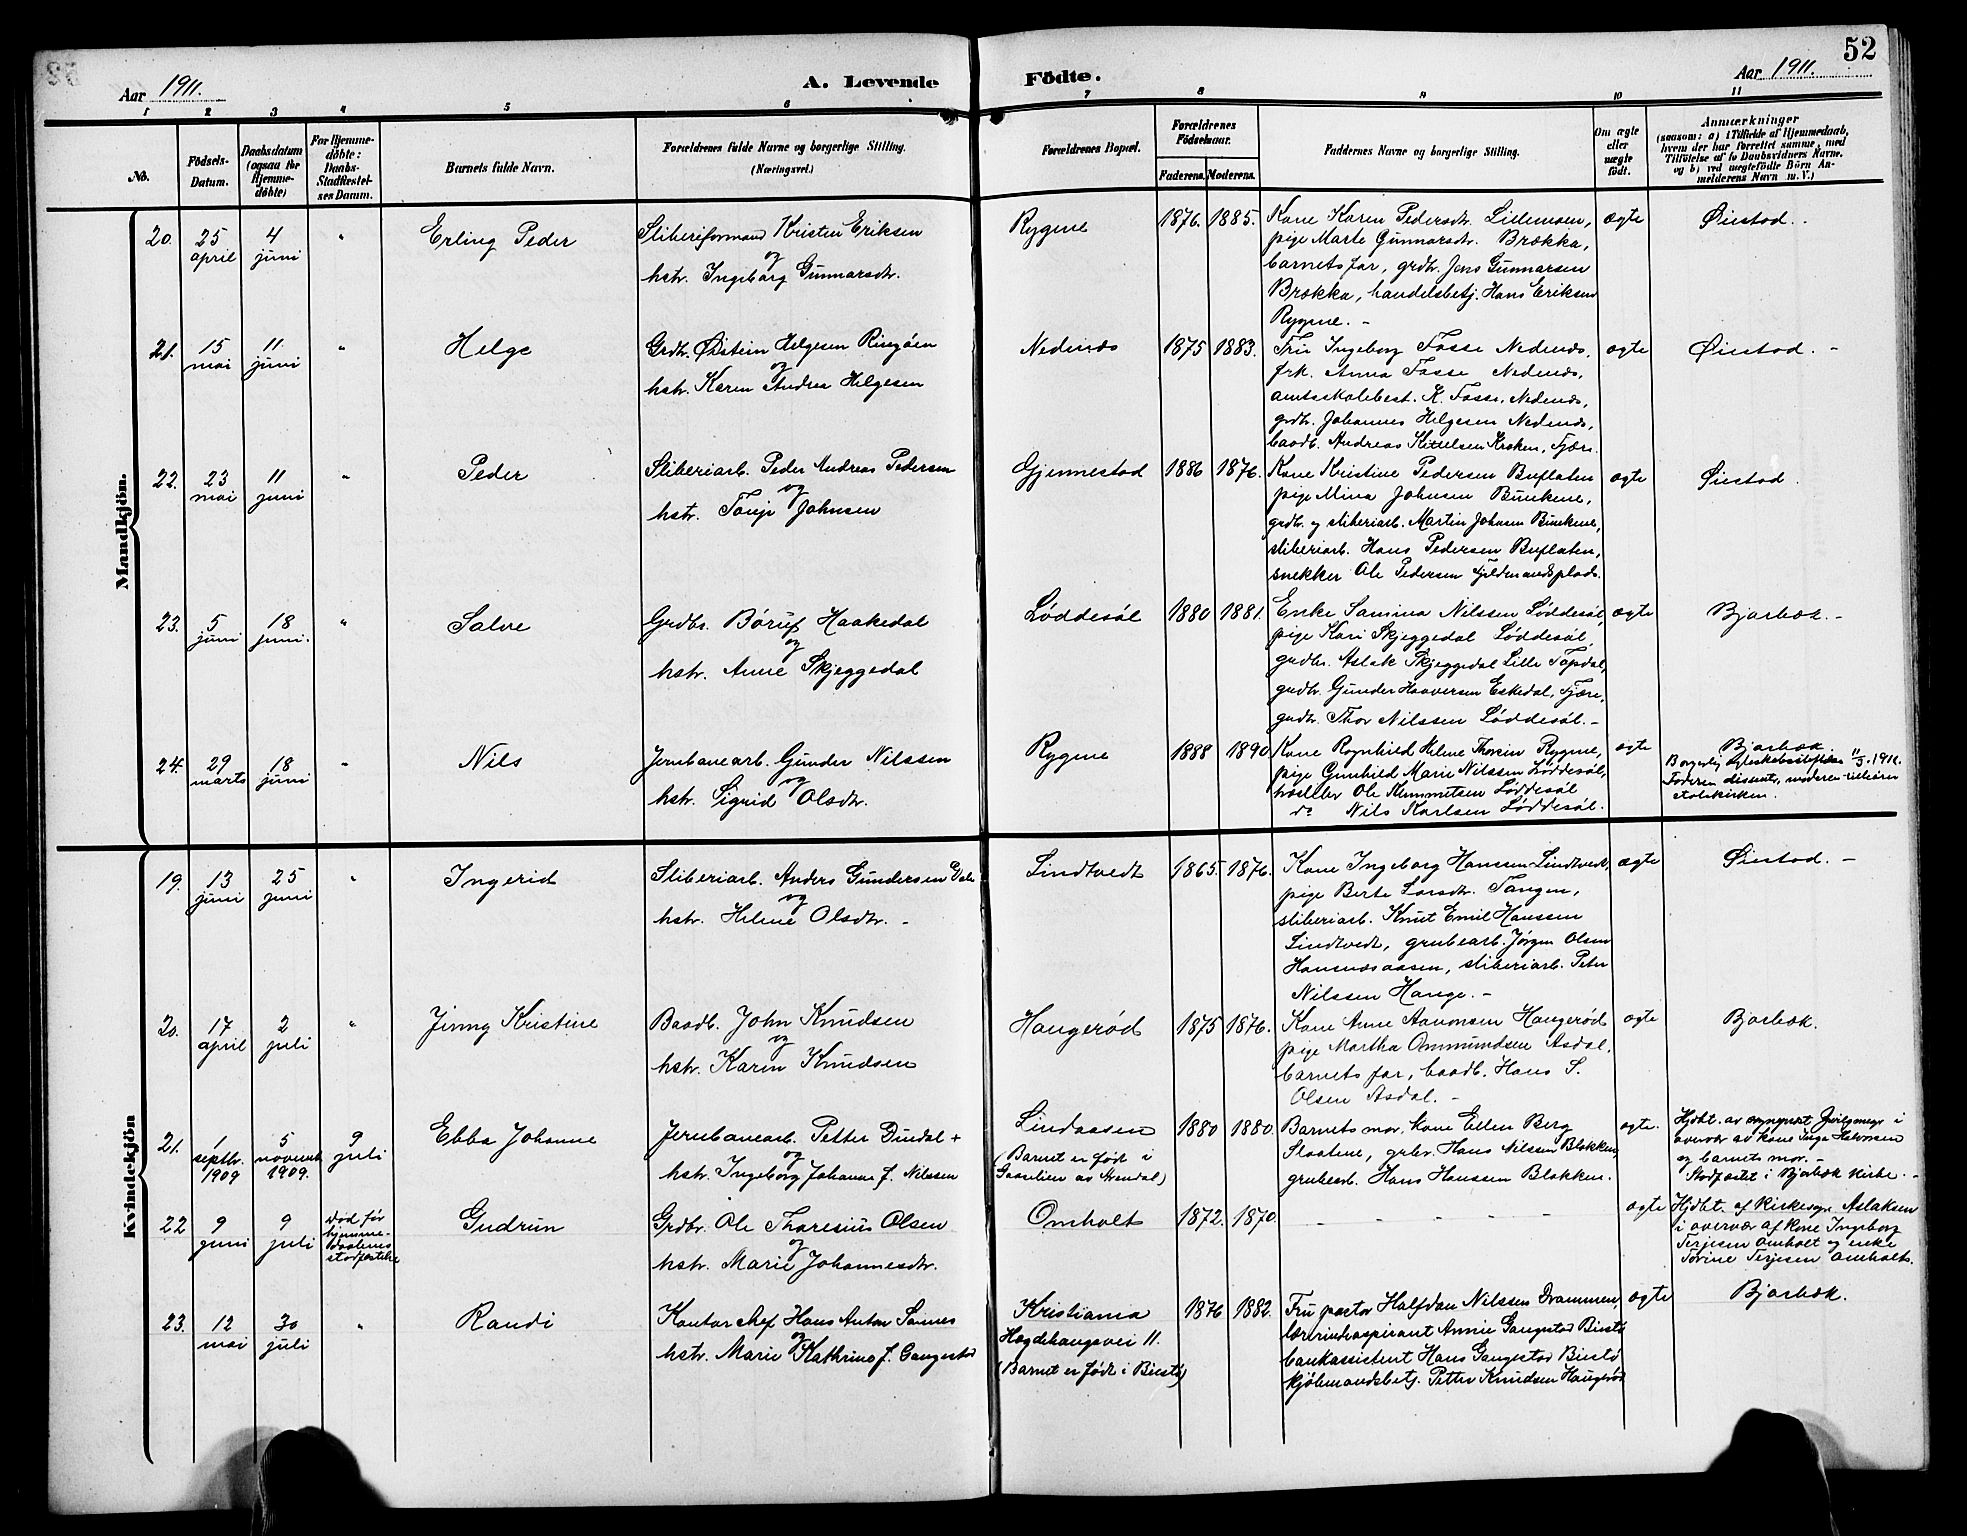 52
Aar 1911.
A. Levende Födte.
Aar 1911.
1 2 3 4 5 6 7 8 9 10 11
No.
Födsels-
Datum.
Daabsdatum
(ogsaa for
Hjemme-
döbte)
For Hjemme-
döbte:
Daabs-
Stadfæstel-
ses Datum.
Barnets fulde Navn.
Forældrenes fulde Navne og borgerlige Stilling.
(Næringsvei.)
Forældrenes Bopæl.
Forældrenes
Födselsaar.
Faderens. Moderens.
Faddernes Navne og borgerlige Stilling.
Om ægte
eller
uægte
födt.
Anmærkninger
(saasom: a) i Tilfælde af Hjemmedaab,
hvem der har forrettet samme, med
Tilföielse af to Daabsvidners Navne,
og b) ved uægtefödte Börn An-
melderens Navn m. V.)
Mandkjön.
20. 25 april 4 juni " Erling Peder
Sliberiformand Kristen Eriksen
og
hstr. Ingeborg Gunnarsdtr.
Rygene 1876. 1885.
Kone Karen Pedersdtr. Lillemoen,
pige Marte Gunnarsdtr. Brække,
barnets far, grdbr. Jens Gunnarsen
Brække, handelsbetj. Hans Eriksen
Rygene. -
ægte Øiestad. -
21. 15 mai 11. juni " Helge
Grdbr. Østein Helgesen Ringåen
og
hstr. Karen Andrea Helgesen
Nedenæs 1875 1883.
Fru Ingeborg Fosse Nedenæs,
frk. Anna Fosse Nedenæs,
amtsskolebest. K. Fosse, Nedenæs,
grdbr. Johannes Helgesen Nedenæs,
baadb. Andreas Kittelsen Kroken, Fjære.
ægte Øiestad. -
22. 23 mai 11 juni " Peder
Sliberiarb. Peder Andreas Pedersen
og
hstr. Torje Johnsen
Gjennestad 1886 1876.
Kone Kristine Pedersen Buflaten
pige Mina Johnsen Bunkene,
grdb. og sliberiarb. Martin Johnsen Bunkene,
sliberiarb. Hans Pedersen Buflaten,
snekker Ole Pedersen Fjeldmandsplads.
ægte Øiestad.
23. 5 juni 18 juni. " Salve
Grdbr. Børuf Haakedal
og
hstr. Anne Skjeggedal
Løddesøl 1880 1881.
Enke Samina Nilssen Løddesøl,
pige Kari Skjeggedal Løddesøl,
grdbr. Aslak Skjeggedal Lille Topdal,
grdbr. Gunder Haaversen Eskedal, Fjære,
grdbr. Thor Nilssen Løddesøl. -
ægte Bjorbæk. -
24. 29 marts 18 juni " Nils
Jernbanearb. Gunder Nilssen
og
hstr. Sigrid Olsdtr.
Rygene 1888 1890
Kone Ragnhild Helene Rygene,
pige Gunhild Marie Nilssen Løddesøl,
Ole Klemmetsen Løddesøl
do Nils Karlsen Løddesøl.
ægte Bjorbæk.
Borgerlig 11/3. 1911.
Faderen dissenter, moderen
statskirken.
Kvindekjön
19. 13 juni 25 juni " Ingerid
Sliberiarb. Anders Gundersen Dale
og
hstr. Helene Olsdtr. -
Lindtvedt 1865. 1876.
Kone Ingeborg Hanssen Lindtvedt,
pige Berte Larsdtr. Tangen,
sliberiarb. Knut Emil Hanssen
Lindtvedt, grubearb. Jørgen Olsen
Hansnesaasen, sliberiarb. Peter
Nilssen Hauge. -
ægte Øiestad. -
20. 17 april 2 juli " Jinny Kristine
Baadb. John Knudsen
og
hstr. Karen Knudsen
Haugerød 1875 1876.
Kone Anne Aanonsen Haugerød
pige Martha Ommundsen Asdal,
barnets far, baadb. Hans S.
Olsen Asdal. -
ægte Bjorbæk.
21. 1 septbr. 1909 5 novemb. 1909. 9 juli Ebba Johanne
Jernbanearb. Petter Dindal +
og
hstr. Ingeborg Johanne f. Nilssen
Lindaasen
(Barnet er født i
av Arendal)
1880 1880.
Barnets mor, kone Ellen Berg
Slaatene, Hans Nilssen Blakken,
grubearb. Hans Hanssen Blakken.
ægte.
Hjdbt. av i
overvær av kone Inga Halvorsen
og barnets mor. -
Stadfæstet i Bjorbæk kirke. -
22 9 juni 9 juli
Død før
hjemme-
daabens
stadfæstelse
Gudrun
Grdbr. Ole Tharesius Olsen
og
hstr. Marie Johannesdtr.
Omholt 1872. 1870.
- - - - - -
ægte
Hjdbt. af Kirkesgr. Aslaksen
i overvær af Kone Ingeborg
Terjesen Omholt og enke
Torine Terjesen Omholt.
23. 12 mai 30 juli " Randi
Kontorchef Hans Anton Sannes
og
hstr. Marie Kathrine f. Gangestad
Kristiania
Hegdehaugsvei 11.
(Barnet er født i Biestø)
1876 1882.
Fru pastor Halfdan Nilssen Drammen,
lærerindeaspirant Annie Gangestad Biestø
bankassistent Hans Gangestad Biestø
kjøbmandsbetj. Petter Knudsen Haugerød
ægte Bjorbæk.